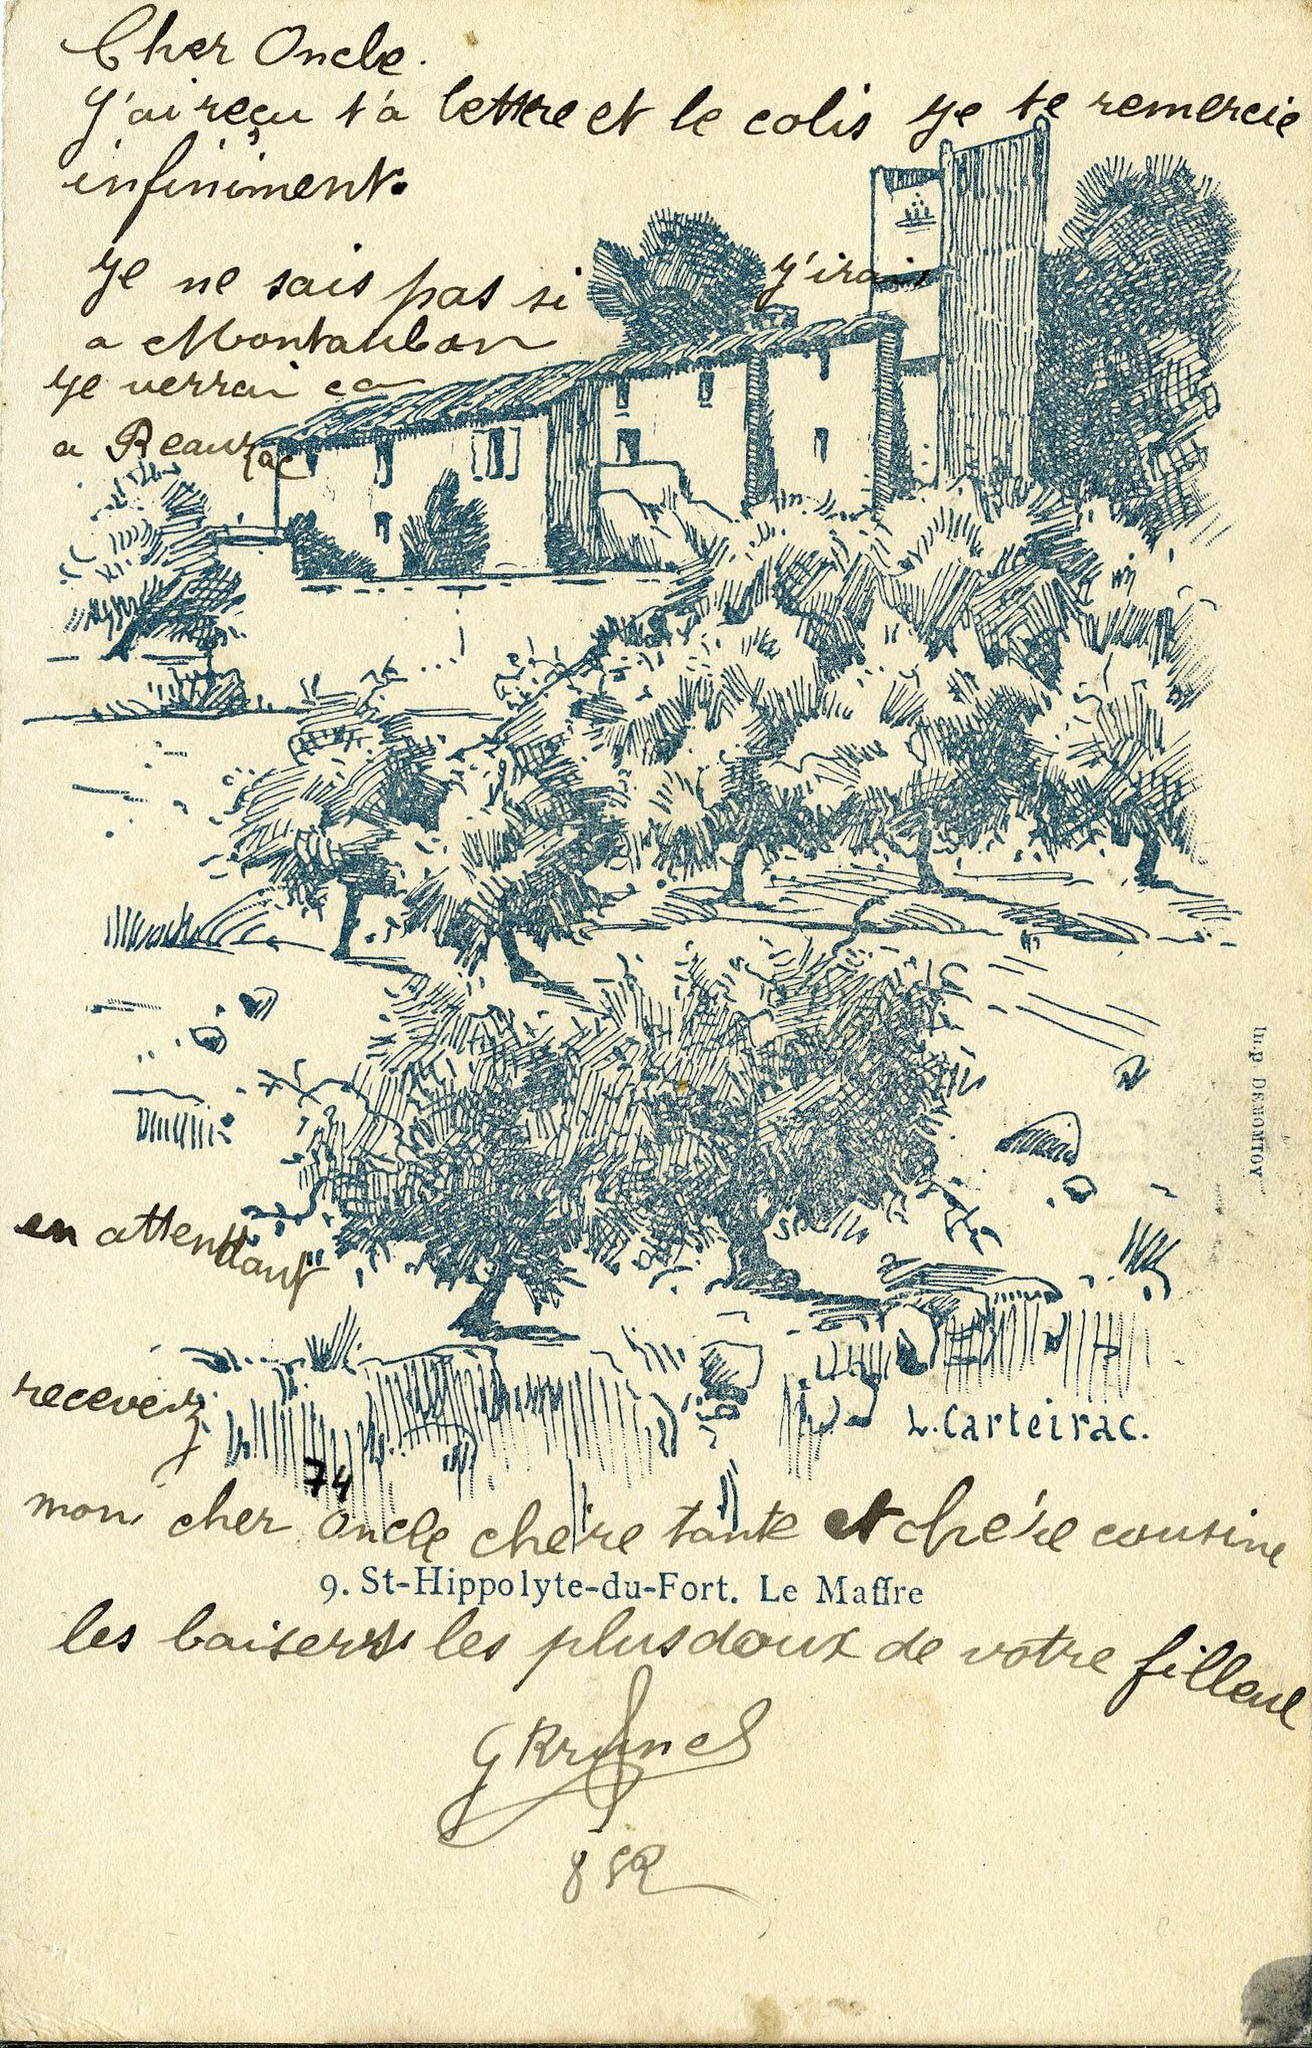 Cher Oncle.
j'ai reçu t'a lettre et le colis je te remercie
infiniment.
je ne sais pas si j'irais
a Montauban
je verrai ca
a Reauzac
en attendant
recevez
74
mon cher Oncle chère tante et chère cousine
L. Carteirac.
9. St-Hippolyte-du-Fort. Le Maffre
les baisers les plus doux de votre filleul
Imp. DEMONTOY